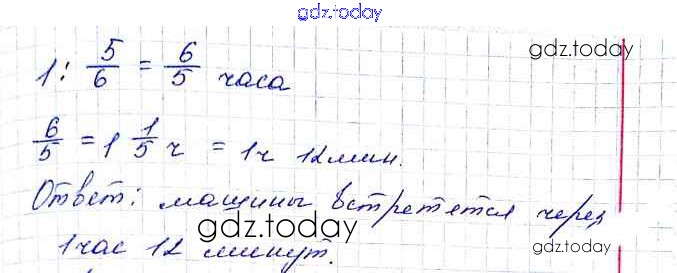 gdz.today
gdz.today
1 : 5/6 = 6/5 часа
6/5 = 1 1/5 ч = 1ч 12мин.
Ответ: машины встретется через
gdz.today
1час 12 минут.
gdz.today